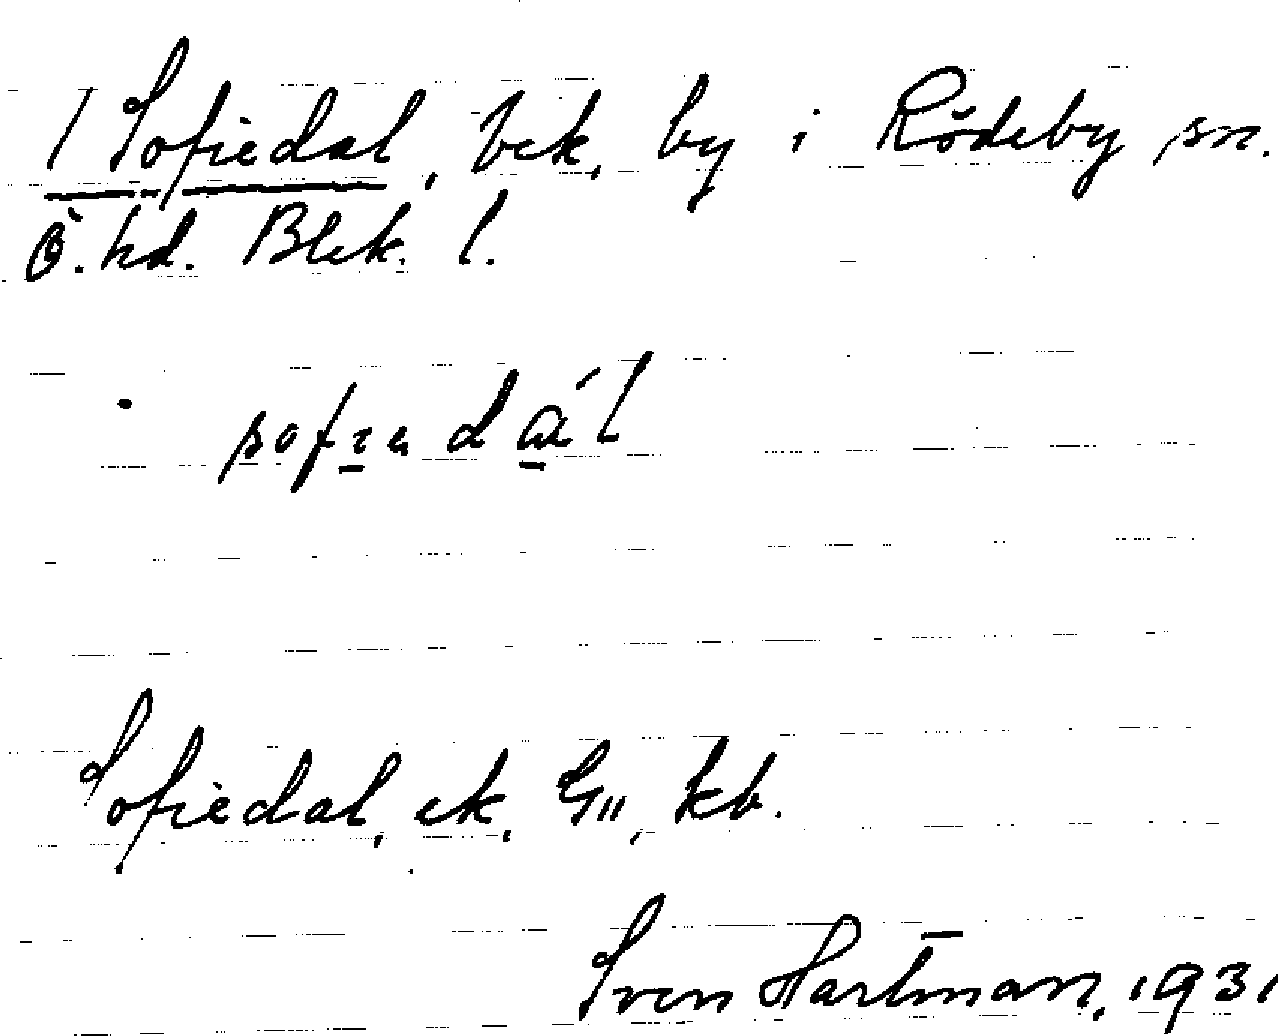 1 Sofiedal, bek. by i Rödeby sn.
Ö. hd. Blek. l.
Sofiedal, ek. G11, kb.
Sven Hartman, 1931